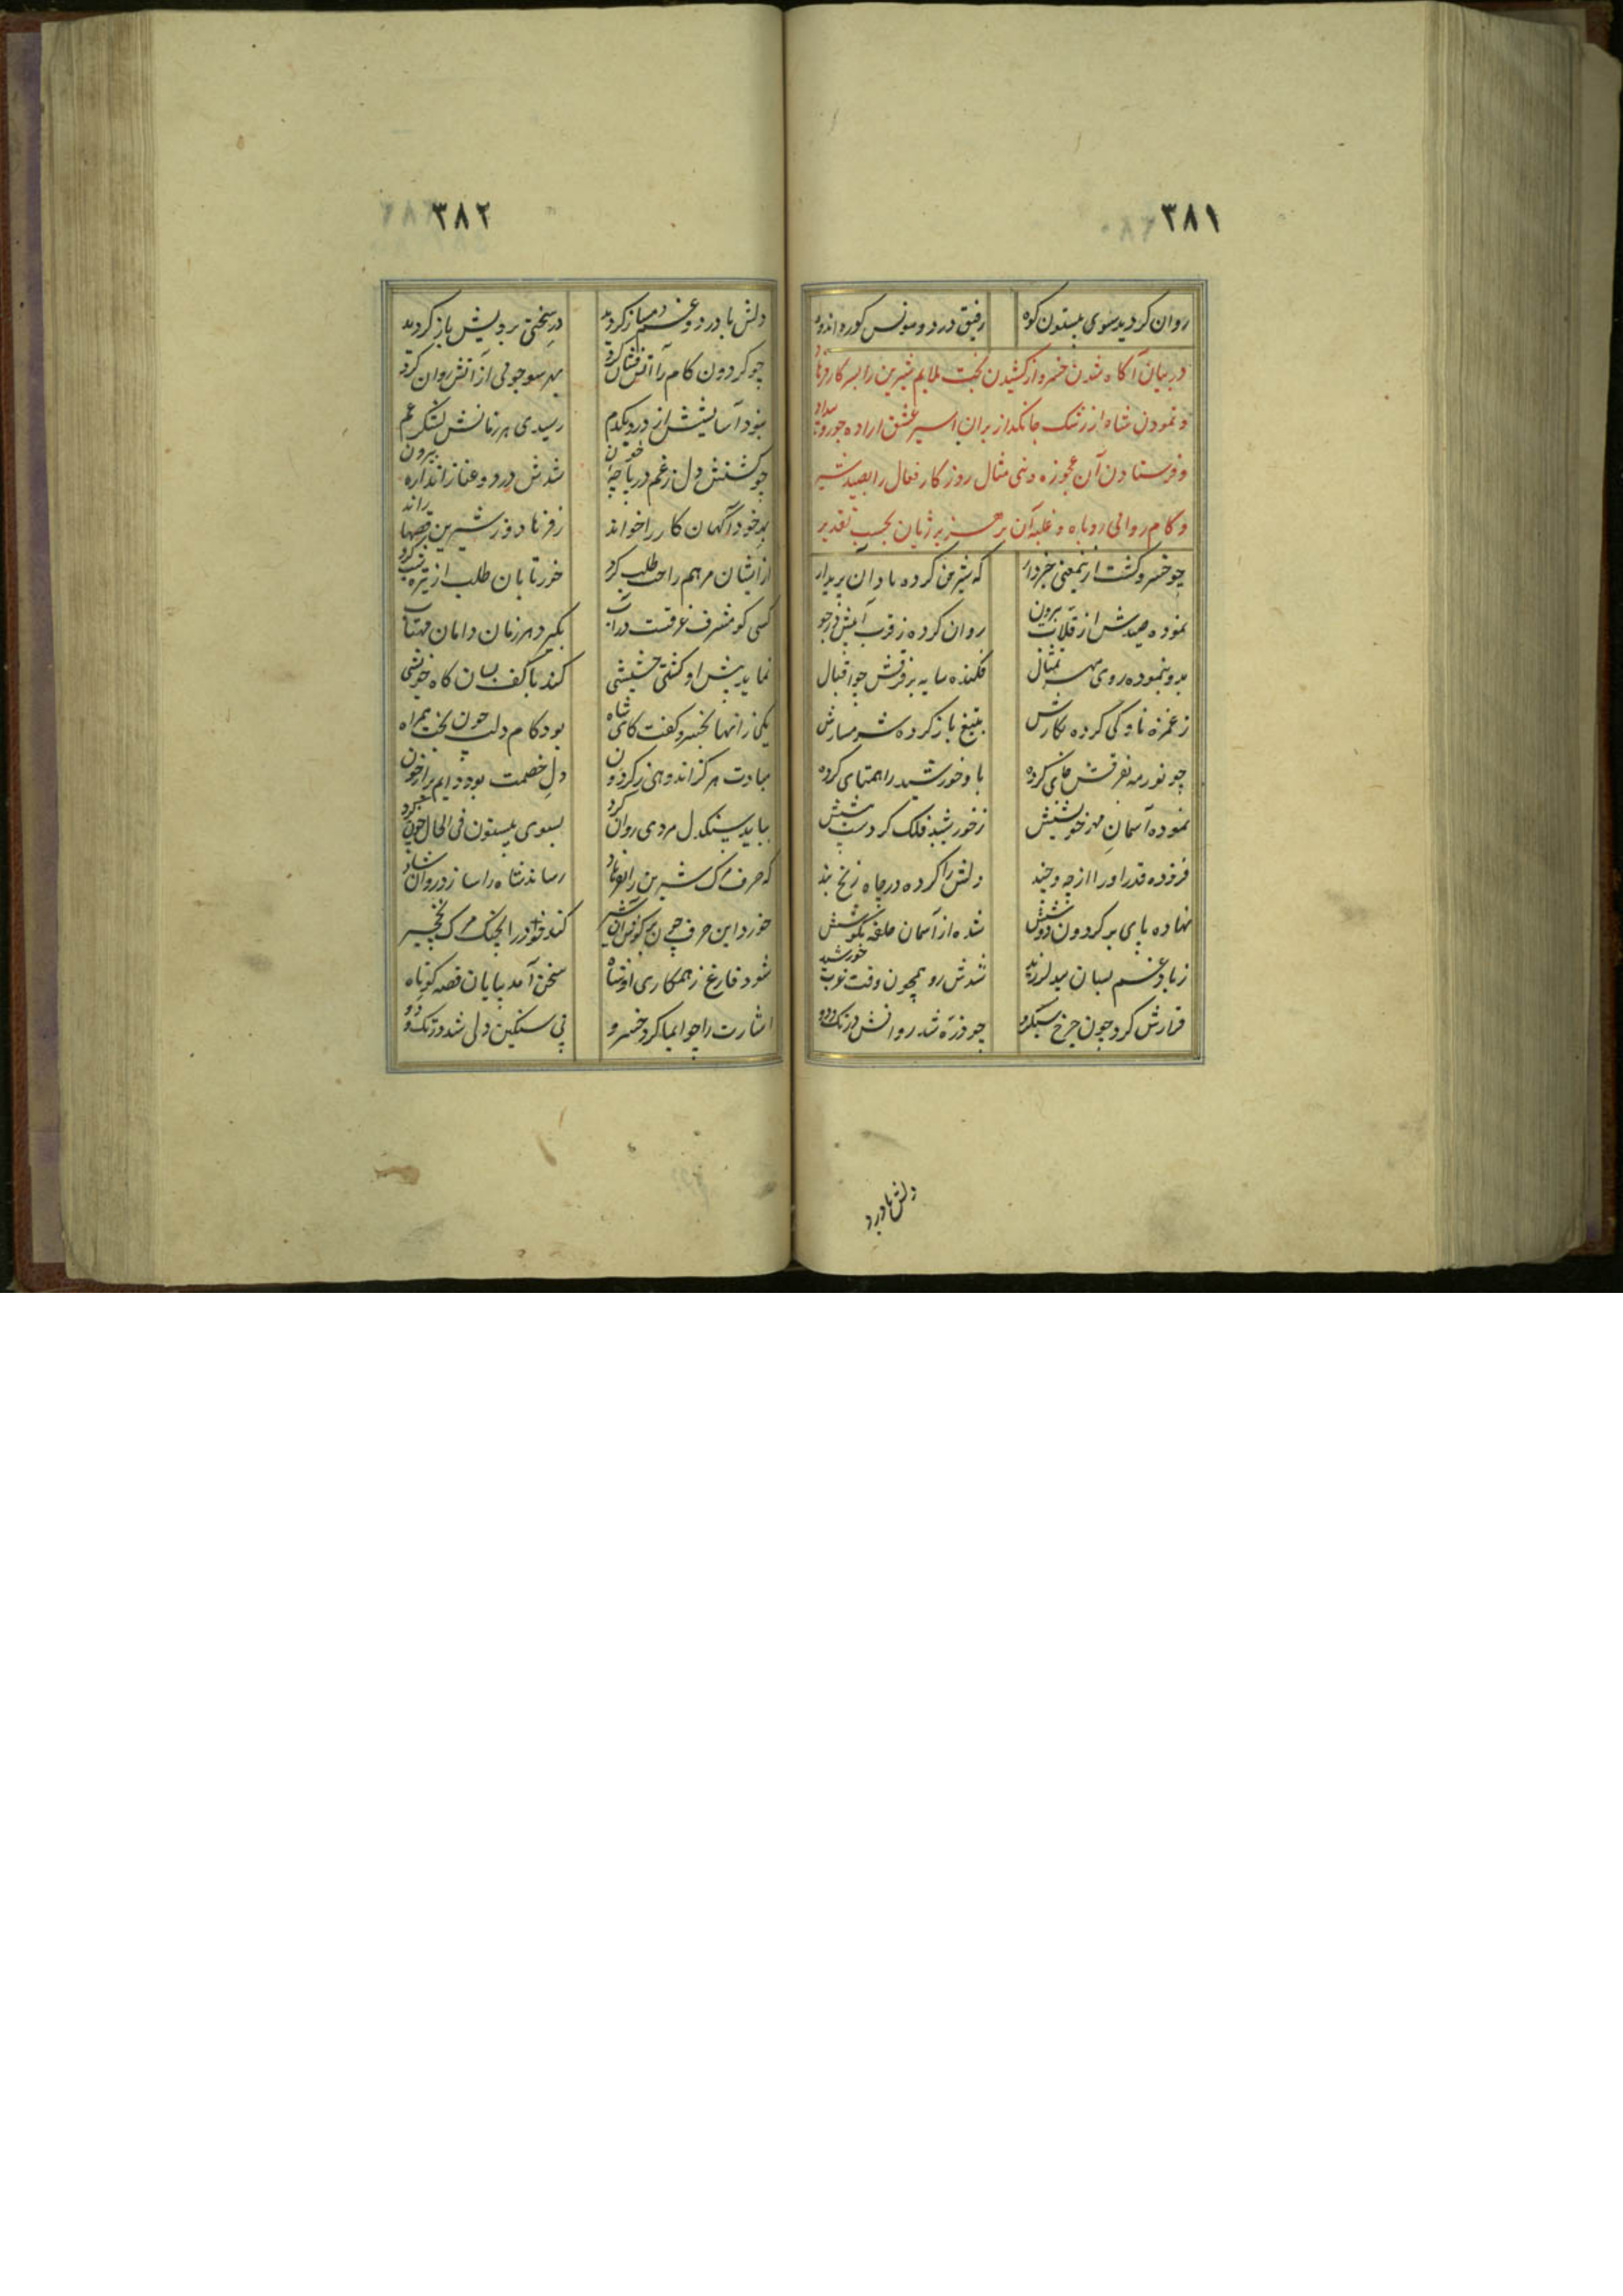 ۳۸۱
روان کردید سوی بیستون کوه رفیق درد و مونس کوره اندوه
در بیان آکاه شدن خسرو از کشیدن بخت ملایم شیرین را بسر کار فرهاد
و نمودن شاه از رشک جانکداز بران اسیر عشق اراده جور و بیداد
و فرستادن آن عجوزه دنی مثال روزکار فعال را بصید شیر
و کام روائی روباه و غلبه آن بر هزبر ژیان بحسب تقدیر
چو خسرو کشت ازینمعنی خبردار که شیرین کرده با آن پریدار
نموده صیدش از قلاب بیرون روان کرده ز قرب آبش در جو
بدو بنموده روی مه تمثال فکنده سایه بر فرقش چو اقبال
ز غمزه ناوکی کرده نکارش بتیغ باز کرده شرمسارش
چو نور مه بفرقش جای کرده با و خورشید را همتای کرده
نموده آسمان مهر خویشش ز خورشید فلک کردست پیشش
فزوده قدر او را از چه و چند دلش را کرده در چاه زنخ بند
نهاده پای بر کردون ز دوشش شده از آسمان حلقه بکوشش
ز باد غم بسان بید لرزید شدش رو همچون وقت غروب خورشید
قرارش کرد چون چرخ سبکرو چو ذره شد روانش در تک و دو
دلش با درد
۳۸۲
دلش با درد و غم دمساز کردید در سختی برویش باز کردید
چو کردون کام را آتش فشان کرد بهر سو جوئی از آتش روان کرد
نبود آسایشش از درد یکدم رسیدی هر زمانش لشکر غم
چو کشتش دل ز غم دریاچه خون شدش درد و عنا ز اندازه بیرون
بر خود آکهان کار را خواند ز فرهاد و ز شیرین قصها راند
از ایشان مرهم راحت طلب کرد خور تابان طلب از تیره شب کرد
کسی کو مشرف غرقست در آب بکیرد هر زمان دامان مهتاب
نماید پیش او کشتی حشیشی کند با کف بسان کاه خویشی
یکی زانها بخسرو کفت کای شاه بود کام دلت چون بخت همراه
مبادت هرکز اندوهی ز کردون دل خصمت بود دایم پر از خون
بباید سنکدل مردی روان کرد بسوی بیستون فی الحال چون کرد
که حرف مرک شیرین را بفرهاد رساند شاه را سازد روان شاد
خورد این حرف چون بر کوش آن شیر کند خود را بچنک مرک نخچیر
شود فارغ ز همکاری او شاه سخن آمد بپایان قصه کوتاه
اشارت را چو ایما کرد خسرو پی سنکین دلی شد در تک و دو